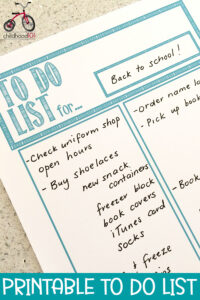 childhood101
TO DO
LIST for...
Back to school!
-Check uniform shop
open hours
- Buy shoelaces
new snack
containers
freezer block
book covers
iTunes card
socks
& freeze
-Order name la
- Pick up book
-Book
PRINTABLE TO DO LIST